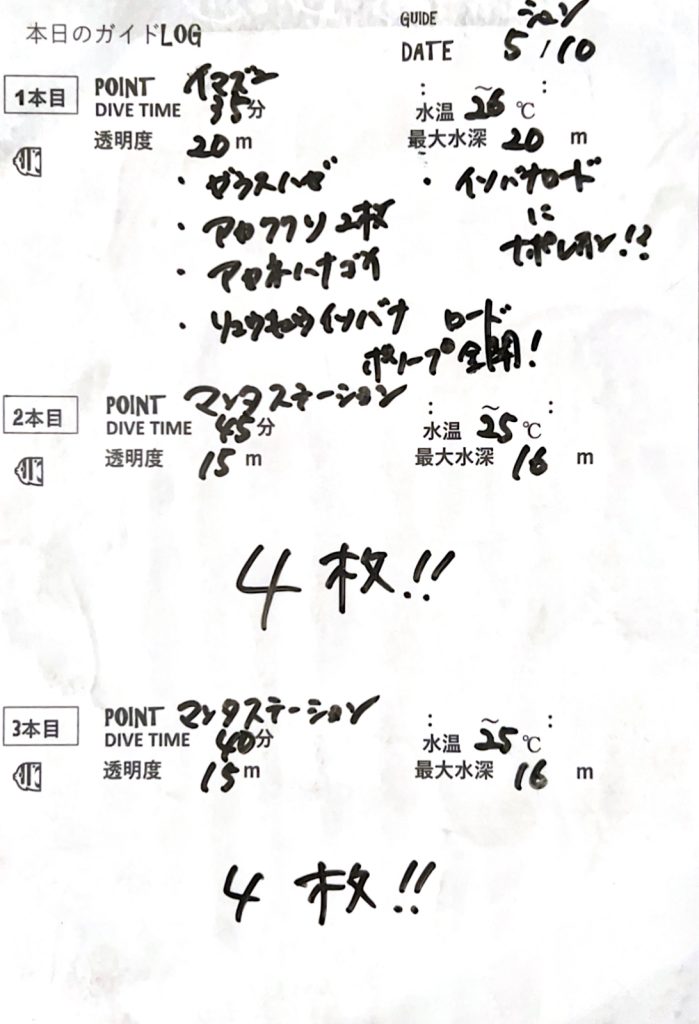 本日のガイドLOG
GUIDE ション
DATE 5/10
1本目
POINT イマズン
DIVE TIME 35分
: ~ :
水温 26℃
透明度 20m
最大水深 20m
・ガラスハゼ
・イソバナロード
に
ナポレオン!?
・アカククリ 2枚
・アカネハナゴイ
・リュウキュウイソバナ ロード
ポリープ全開!
2本目
POINT マンタステーション
DIVE TIME 45分
: ~ :
水温 25℃
透明度 15m
最大水深 16m
4枚!!
3本目
POINT マンタステーション
DIVE TIME 40分
: ~ :
水温 25℃
透明度 15m
最大水深 16m
4枚!!